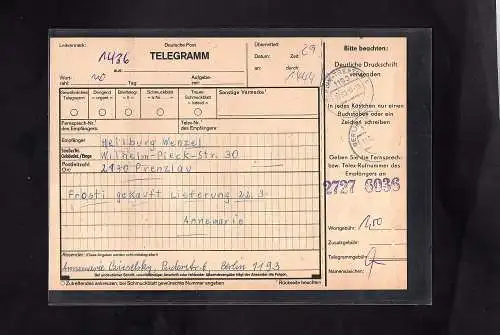 Leitvermerk:
1436
Deutsche Post
TELEGRAMM
aus:
Übermittelt
Datum: Zeit: 29
Wort-
zahl:
Aufgabe-
Tag: zeit:
an: durch: 1444
Gewöhnliches Telegramm
Dringend = urgent =
Brieftelegr. = lt =
Schmuckblatt = lx Nr. =
Trauer-Schmuckblatt = lxdeuil =
Sonstige Vermerke¹
Fernsprech-Nr.¹ des Empfängers:
Telex-Nr.¹ des Empfängers:
Empfänger:
Heilburg Wenzel
Straße/Nr.
Gebäudet./Etage
Wilhelm-Pieck-Str. 30
Postleitzahl
Ort
2130 Prenzlau
Frosti gekauft Lieferung 22.3.
Annemarie
Absender:
(Diese Angaben werden nicht mittelegrafiert)
Annemarie Berlin 1193
Zutreffendes ankreuzen, bei Schmuckblatt gewünschte Nummer angeben
¹ Rückseite beachten!
Bitte beachten:
Deutliche Druckschrift
verwenden
In jedes Kästchen nur einen
Buchstaben oder ein
Zeichen schreiben
Geben Sie die Fernsprech-
bzw. Telex-Rufnummer des
Empfängers an
2727 6036
Wortgebühr: 1,00
Zusatzgebühr:
Telegrammgebühr:
Namenszeichen: